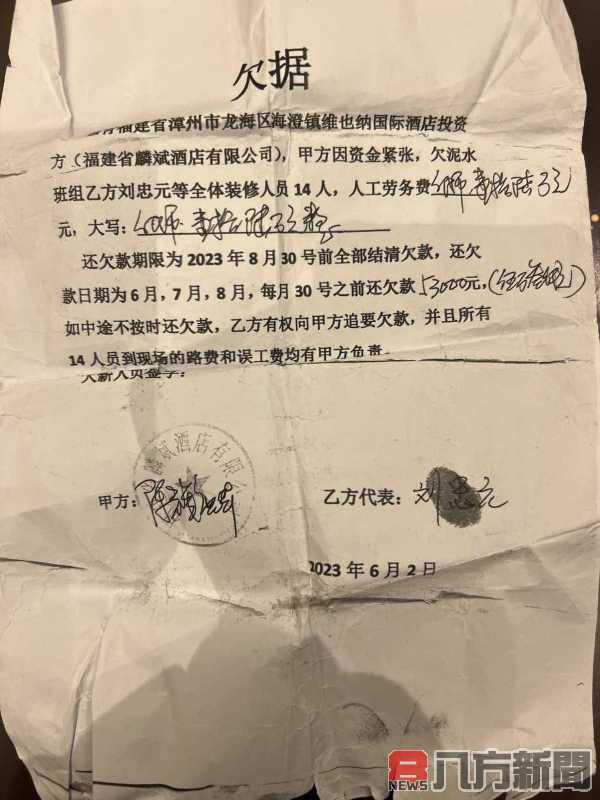 欠据
福建省漳州市龙海区海澄镇维也纳国际酒店投资
方（福建省麟斌酒店有限公司），甲方因资金紧张，欠泥水
班组乙方刘忠元等全体装修人员 14 人，人工劳务费
元，大写：
还欠款期限为 2023 年 8 月 30 号前全部结清欠款，还欠
款日期为 6 月，7 月，8 月，每月 30 号之前还欠款 53000元，
如中途不按时还欠款，乙方有权向甲方追要欠款，并且所有
14 人员到现场的路费和误工费均有甲方负责
人薪人员签字：
酒店有限公
甲方：
乙方代表：刘忠元
2023 年 6 月 2 日
8 NEWS 八方新聞